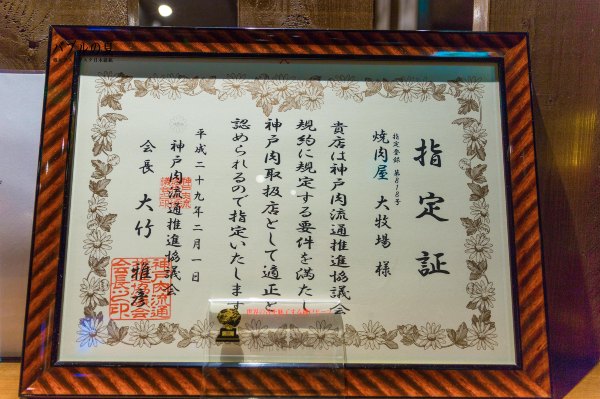 指定証
指定登録 第818号
焼肉屋 大牧場 様
貴店は神戸肉流通推進協議会
規約に規定する要件を満たし
神戸肉取扱店として適正と
認められるので指定いたします
平成二十九年二月一日
神戸肉流通推進協議会
会長 大竹 雅彦
神戸肉流通
推進協議会
会長之印